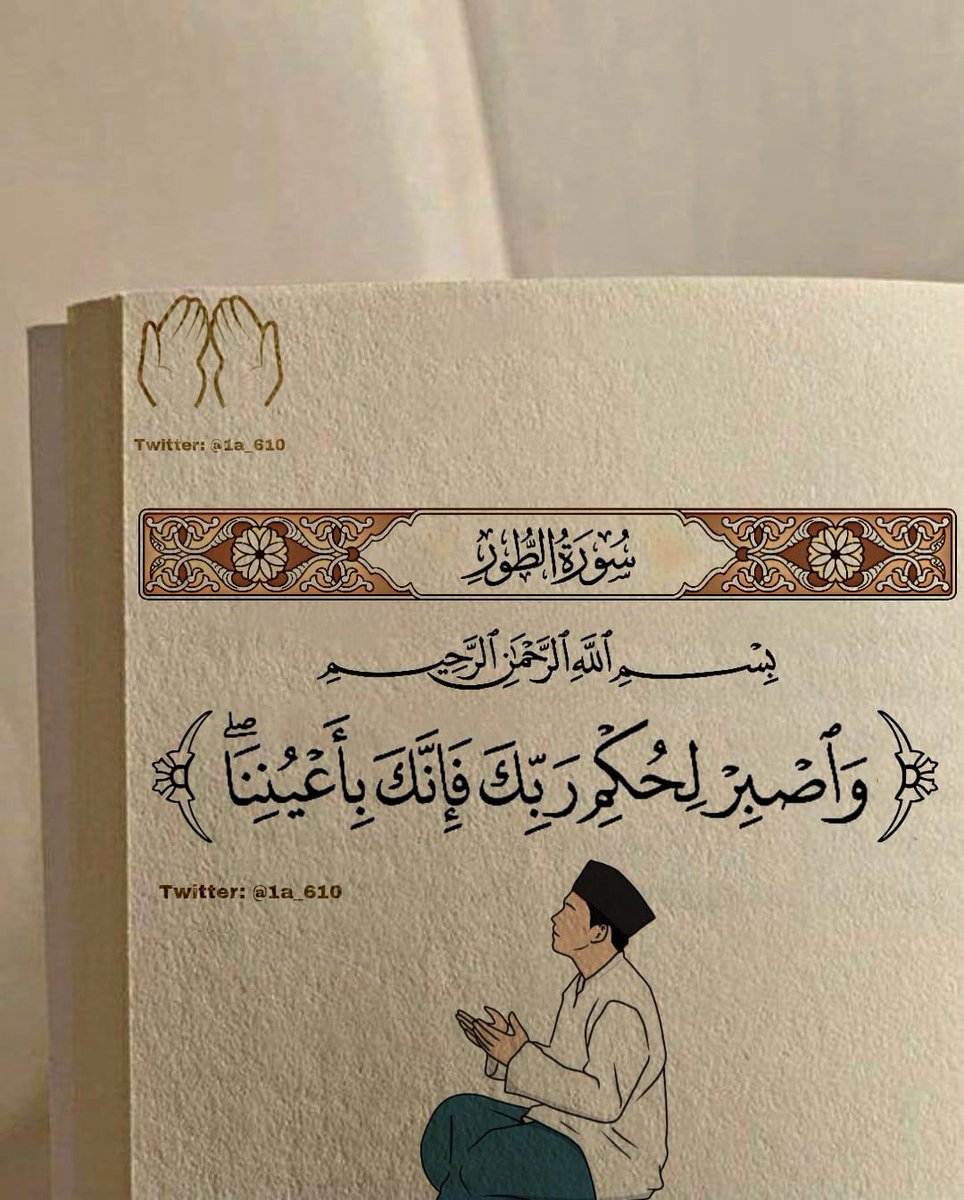 Twitter: @1a_610
سُورَةُ الطُّورِ
بِسْمِ ٱللَّهِ ٱلرَّحْمَٰنِ ٱلرَّحِيمِ
وَٱصْبِرْ لِحُكْمِ رَبِّكَ فَإِنَّكَ بِأَعْيُنِنَاۖ
Twitter: @1a_610